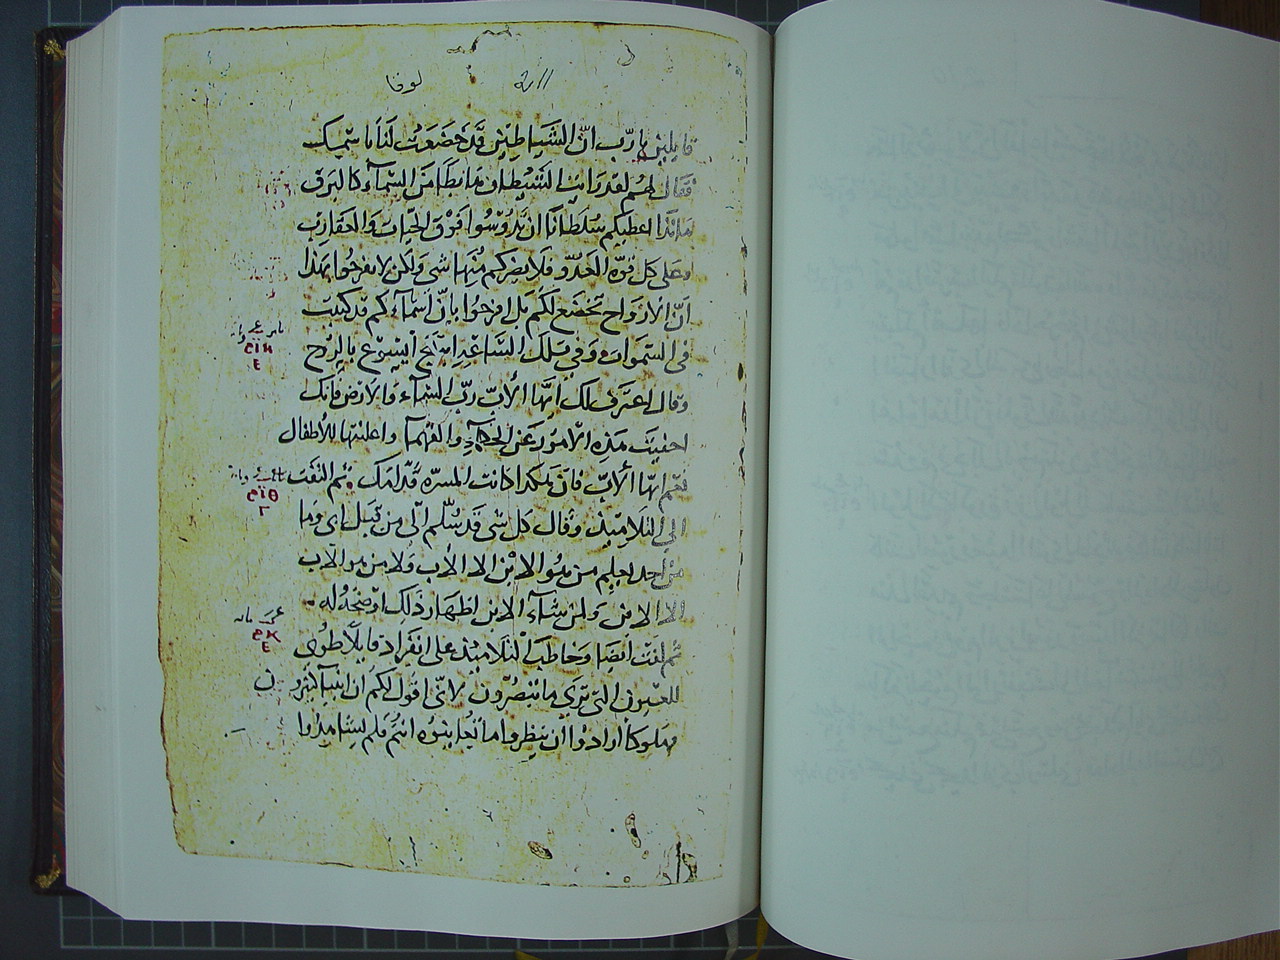 لوقا
قايلين يا رب ان الشياطين قد خضعوت لنا باسميك
فقال لهم لقد رايت الشيطان هابطا من السمآء كالبرق
هانذا اعطيكم سلطانا ان تدوسوا فوق الحيات والعقارب
وعلى كل قوة العدو فلا يضركم منها شى ولكن لا تفرحوا بهذا
ان الارواح تخضع لكم بل افرحوا بان اسمآءكم قد كتبت
فى السموات وفي تلك الساعة ابتهج ايسوع بالروح
وقال اعترف لك ايها الاب رب السمآء والارض فانك
اخفيت هذه الامور عن الحكمآء والفهمآ واعلنتها للاطفال
نعم ايها الاب فان هكذا كانت المسره قدامك ثم التفت
الى التلاميذ وقال كل شى قد سلم الى من قبل ابى وما
من احد يعلم من هو الابن الا الاب ولا من هو الاب
الا الابن ولمن يشآء الابن اظهار ذلك اوضحه له
ثم لفت ايضا وخاطب التلاميذ على انفراد قايلا طوبى
للعيون التى ترى ما تبصرون لانى اقول لكم ان انبيآ كثيرون
وملوكا ارادوا ان ينظروا ما تعاينوه انتم فلم يشاهدوا